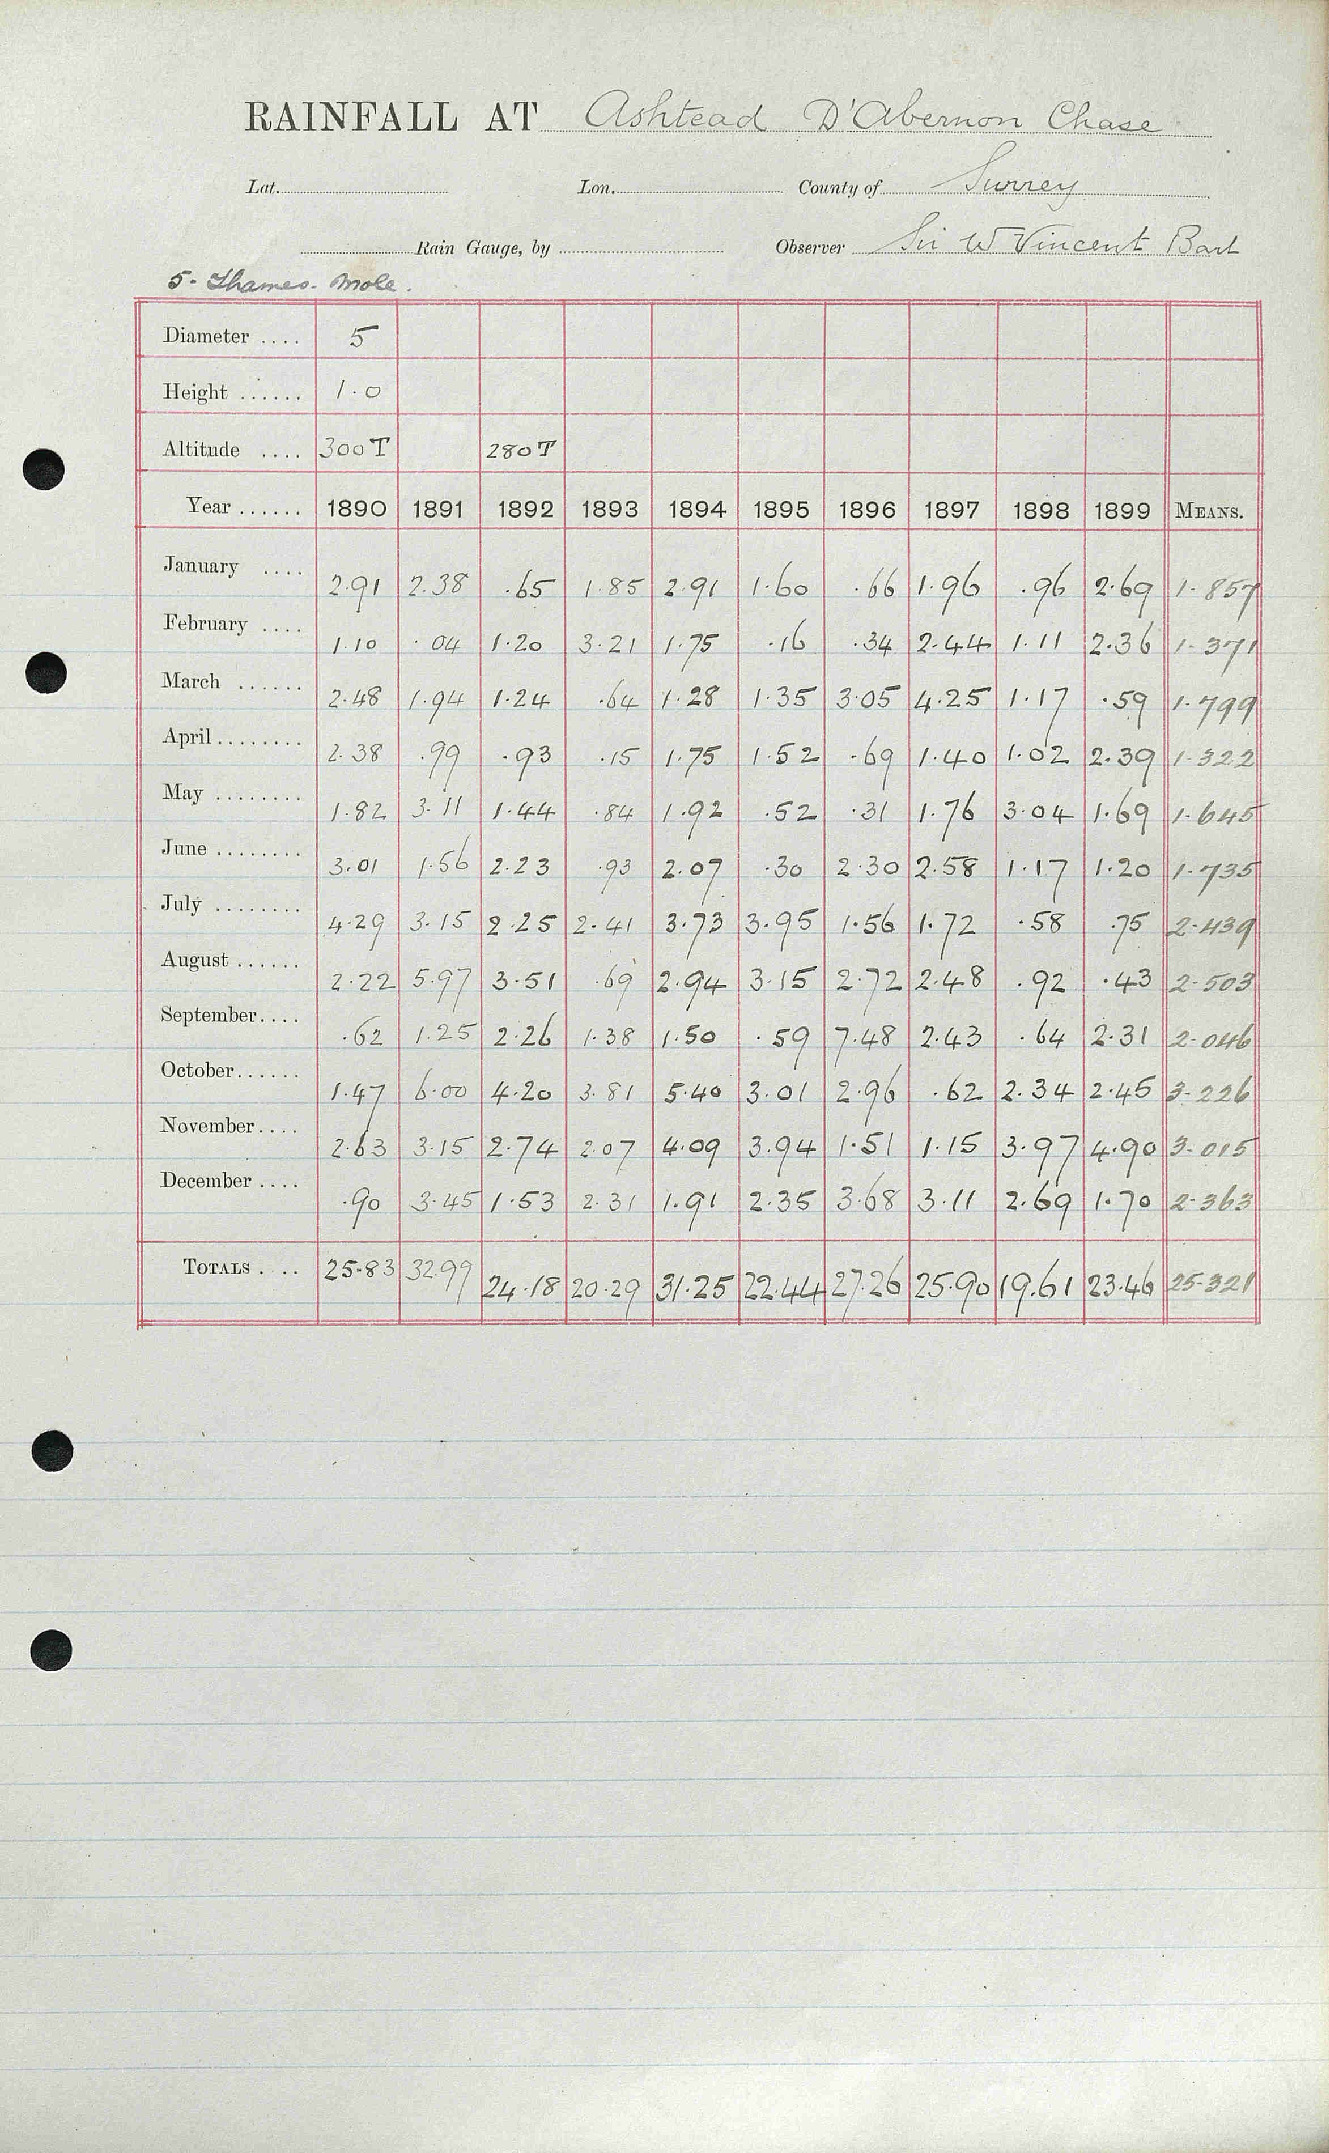 RAINFALL AT Ashtead D'Abernon Chase
Lat. Lon. County of Surrey
Rain Gauge, by Observer Sir W Vincent Bart
5. Thames. Mole.
Diameter .... 5
Height ...... 1.0
Altitude .... 300T 280T
Year ...... 1890 1891 1892 1893 1894 1895 1896 1897 1898 1899 MEANS.
January .... 2.91 2.38 .65 1.85 2.91 1.60 .66 1.96 .96 2.69 1.857
February .... 1.10 .04 1.20 3.21 1.75 .16 .34 2.44 1.11 2.36 1.371
March ...... 2.48 1.94 1.24 .64 1.28 1.35 3.05 4.25 1.17 .59 1.799
April ........ 2.38 .99 .93 .15 1.75 1.52 .69 1.40 1.02 2.39 1.322
May ........ 1.82 3.11 1.44 .84 1.92 .52 .31 1.76 3.04 1.69 1.645
June ........ 3.01 1.56 2.23 .93 2.07 .30 2.30 2.58 1.17 1.20 1.735
July ........ 4.29 3.15 2.25 2.41 3.73 3.95 1.56 1.72 .58 .75 2.439
August ...... 2.22 5.97 3.51 .69 2.94 3.15 2.72 2.48 .92 .43 2.503
September .... .62 1.25 2.26 1.38 1.50 .59 7.48 2.43 .64 2.31 2.046
October ...... 1.47 6.00 4.20 3.81 5.40 3.01 2.96 .62 2.34 2.45 3.226
November .... 2.63 3.15 2.74 2.07 4.09 3.94 1.51 1.15 3.97 4.90 3.015
December .... .90 3.45 1.53 2.31 1.91 2.35 3.68 3.11 2.69 1.70 2.363
TOTALS .... 25.83 32.99 24.18 20.29 31.25 22.44 27.26 25.90 19.61 23.46 25.321